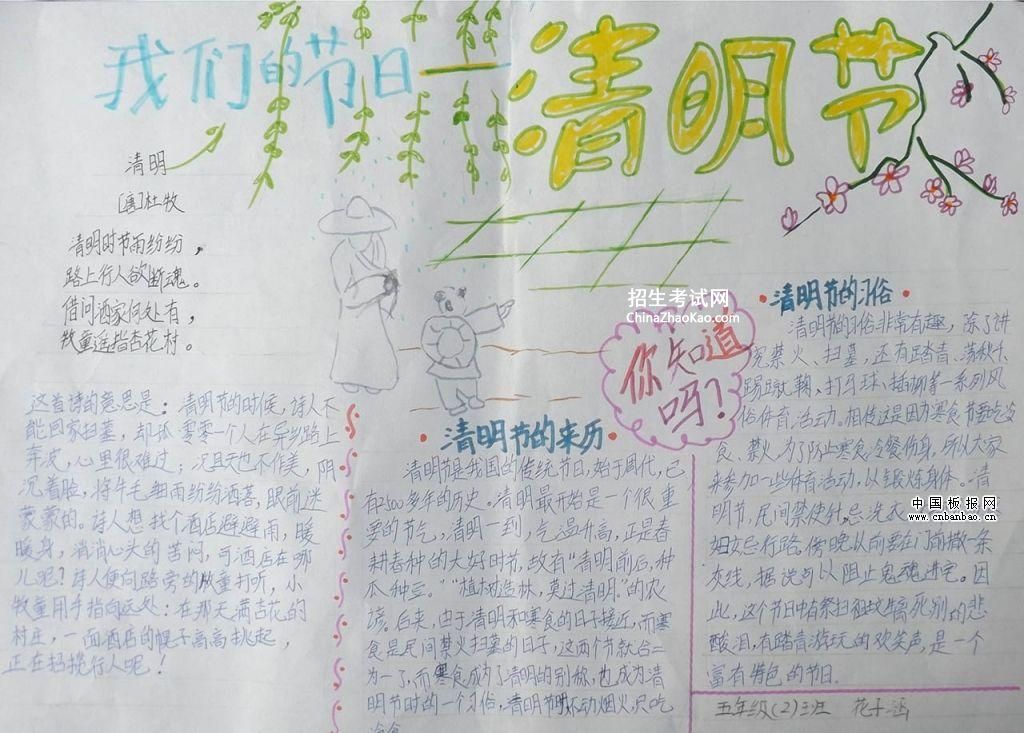 我们的节日——清明节
清明
[唐]杜牧
清明时节雨纷纷，
路上行人欲断魂。
借问酒家何处有，
牧童遥指杏花村。
这首诗的意思是：清明节的时候，诗人不
能回家扫墓，却孤零零一个人在异乡路上
奔波，心里很难过；况且天也不作美，阴
沉着脸，将牛毛细雨纷纷洒落，眼前迷
蒙蒙的。诗人想找个酒店避避雨，暖
暖身，消消心头的苦闷，可酒店在哪
儿呢？诗人便向路旁的牧童打听，小
牧童用手指向远处：在那天满杏花的
村庄，一面酒店的幌子高高挑起，
正在招揽行人呢！
招生考试网
ChinaZhaoKao.com
你知道
吗？
清明节的来历
清明节是我国的传统节日，始于周代，已
有2500多年的历史。清明最开始是一个很重
要的节气，清明一到，气温升高，正是春
耕春种的大好时节，故有“清明前后，种
瓜种豆。”“植树造林，莫过清明”的农
谚。后来，由于清明和寒食的日子接近，而寒
食是民间禁火扫墓的日子，这两个节就合二
为一了，而寒食成为了清明的别称，也成为清
明节时的一个习俗，清明节时不动烟火，只吃
清明节的习俗
清明节的习俗非常有趣，除了讲
究禁火、扫墓，还有踏青、荡秋千、
踢蹴鞠、打马球、插柳等一系列风
俗体育活动。相传这是因为寒食节要吃冷
食、禁火，为了防止寒食冷餐伤身，所以大家
来参加一些体育活动，以锻炼身体。清
明节，民间禁使针，忌洗衣
妇女忌行路。傍晚以前要在门前撒一条
灰线，据说可以阻止鬼魂进宅。因
此，这个节日中有祭扫祖坟生离死别的悲
酸泪，有踏青游玩的欢笑声，是一个
富有特色的节日.
中国板报网
www.cnbanbao.cn
五年级(2)班 花子涵